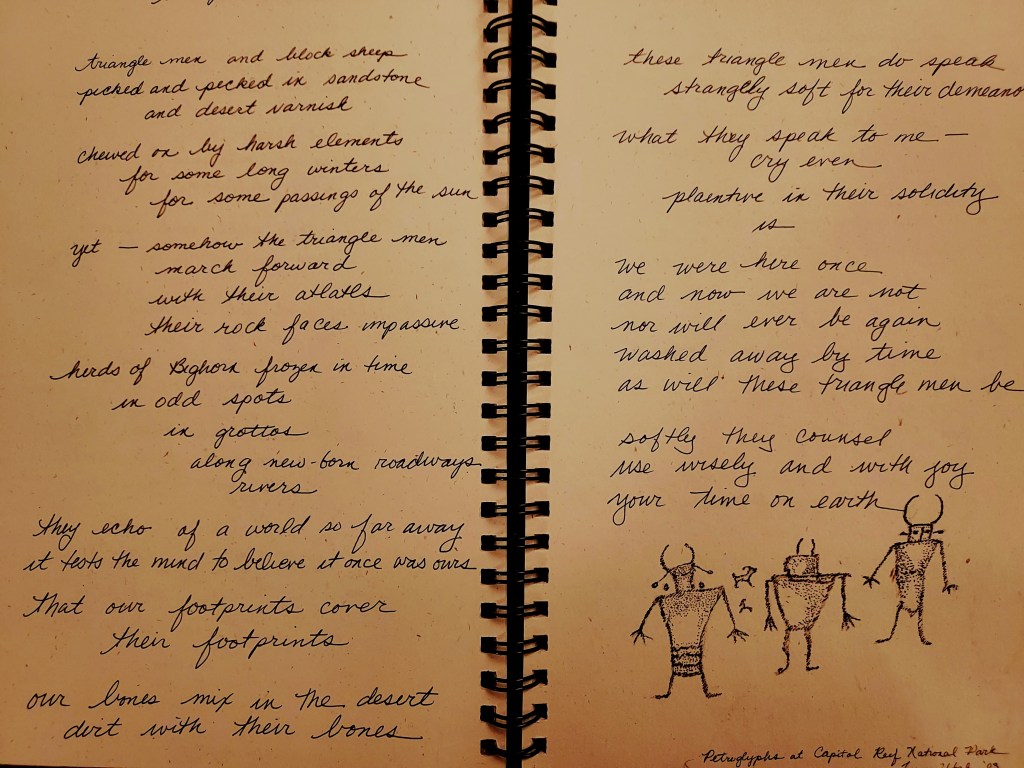 triangle men and block sheep
picked and pecked in sandstone
and desert varnish
chewed on by harsh elements
for some long winters
for some passings of the sun
yet — somehow the triangle men
march forward
with their atlatls
their rock faces impassive
herds of Bighorn frozen in time
in odd spots
in grottos
along new-born roadways
rivers
they echo of a world so far away
it tests the mind to believe it once was ours
that our footprints cover
their footprints
our bones mix in the desert
dirt with their bones
these triangle men do speak
strangely soft for their demeano
what they speak to me —
cry even
plaintive in their solidity
is
we were here once
and now we are not
nor will ever be again
washed away by time
as will these triangle men be
softly they counsel
use wisely and with joy
your time on earth
Petroglyphs at Capitol Reef National Park
Utah '03